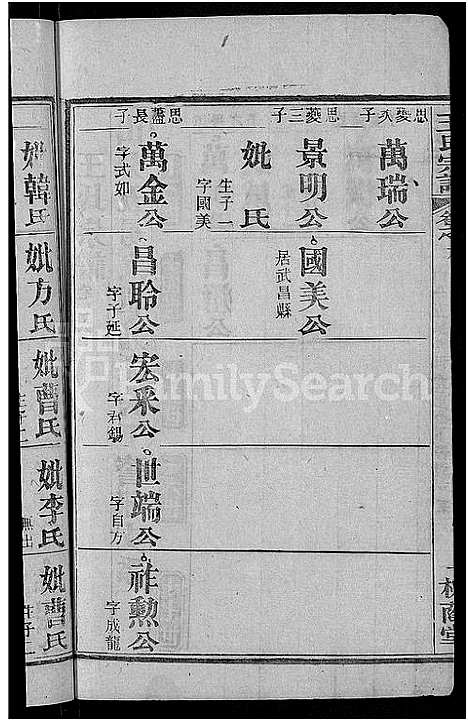 王氏宗譜
思夔次子
萬瑞公
思夔三子
景明公
國美公
居武昌縣
妣氏
生子一
字國美
思盛長子
萬金公
字式如
昌聆公
字子延
宏采公
字君錫
世端公
字自方
祚勳公
字成龍
妣韓氏
妣方氏
妣曹氏
妣李氏
無出
妣曹氏
生子
FamilySearch